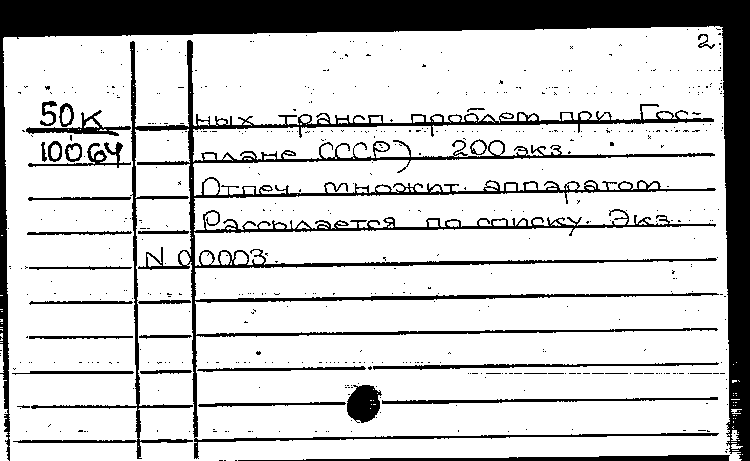 2
50к
ных трансп. проблем при Гос-
10064
плане СССР). 200 экз.
Отпеч. множит. аппаратом.
Рассылается по списку. Экз.
N 00003.